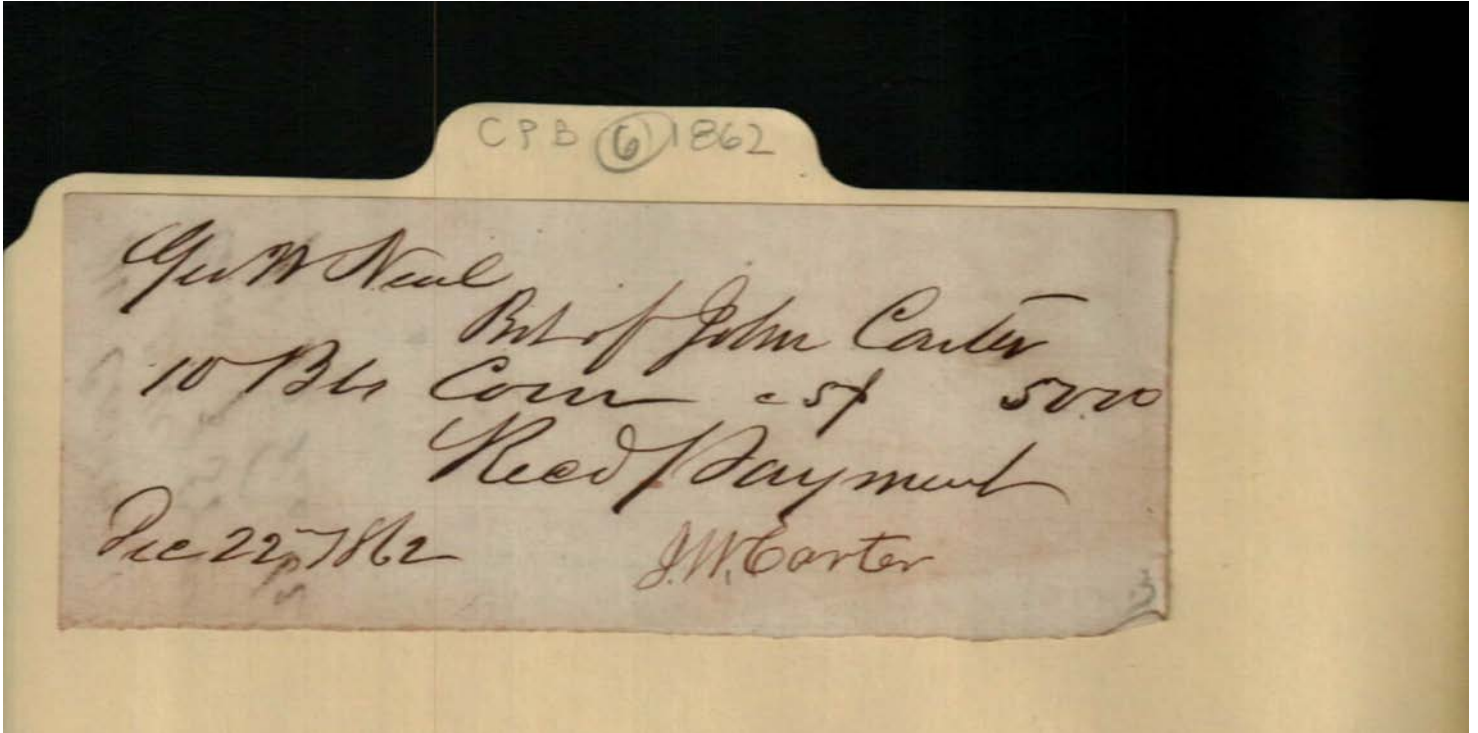 CPB 6 1862
Geo W Neal
Bot of John Carter
10 Bls Corn 5 50.00
Recd Payment
Dec 22 1862
J.W. Carter